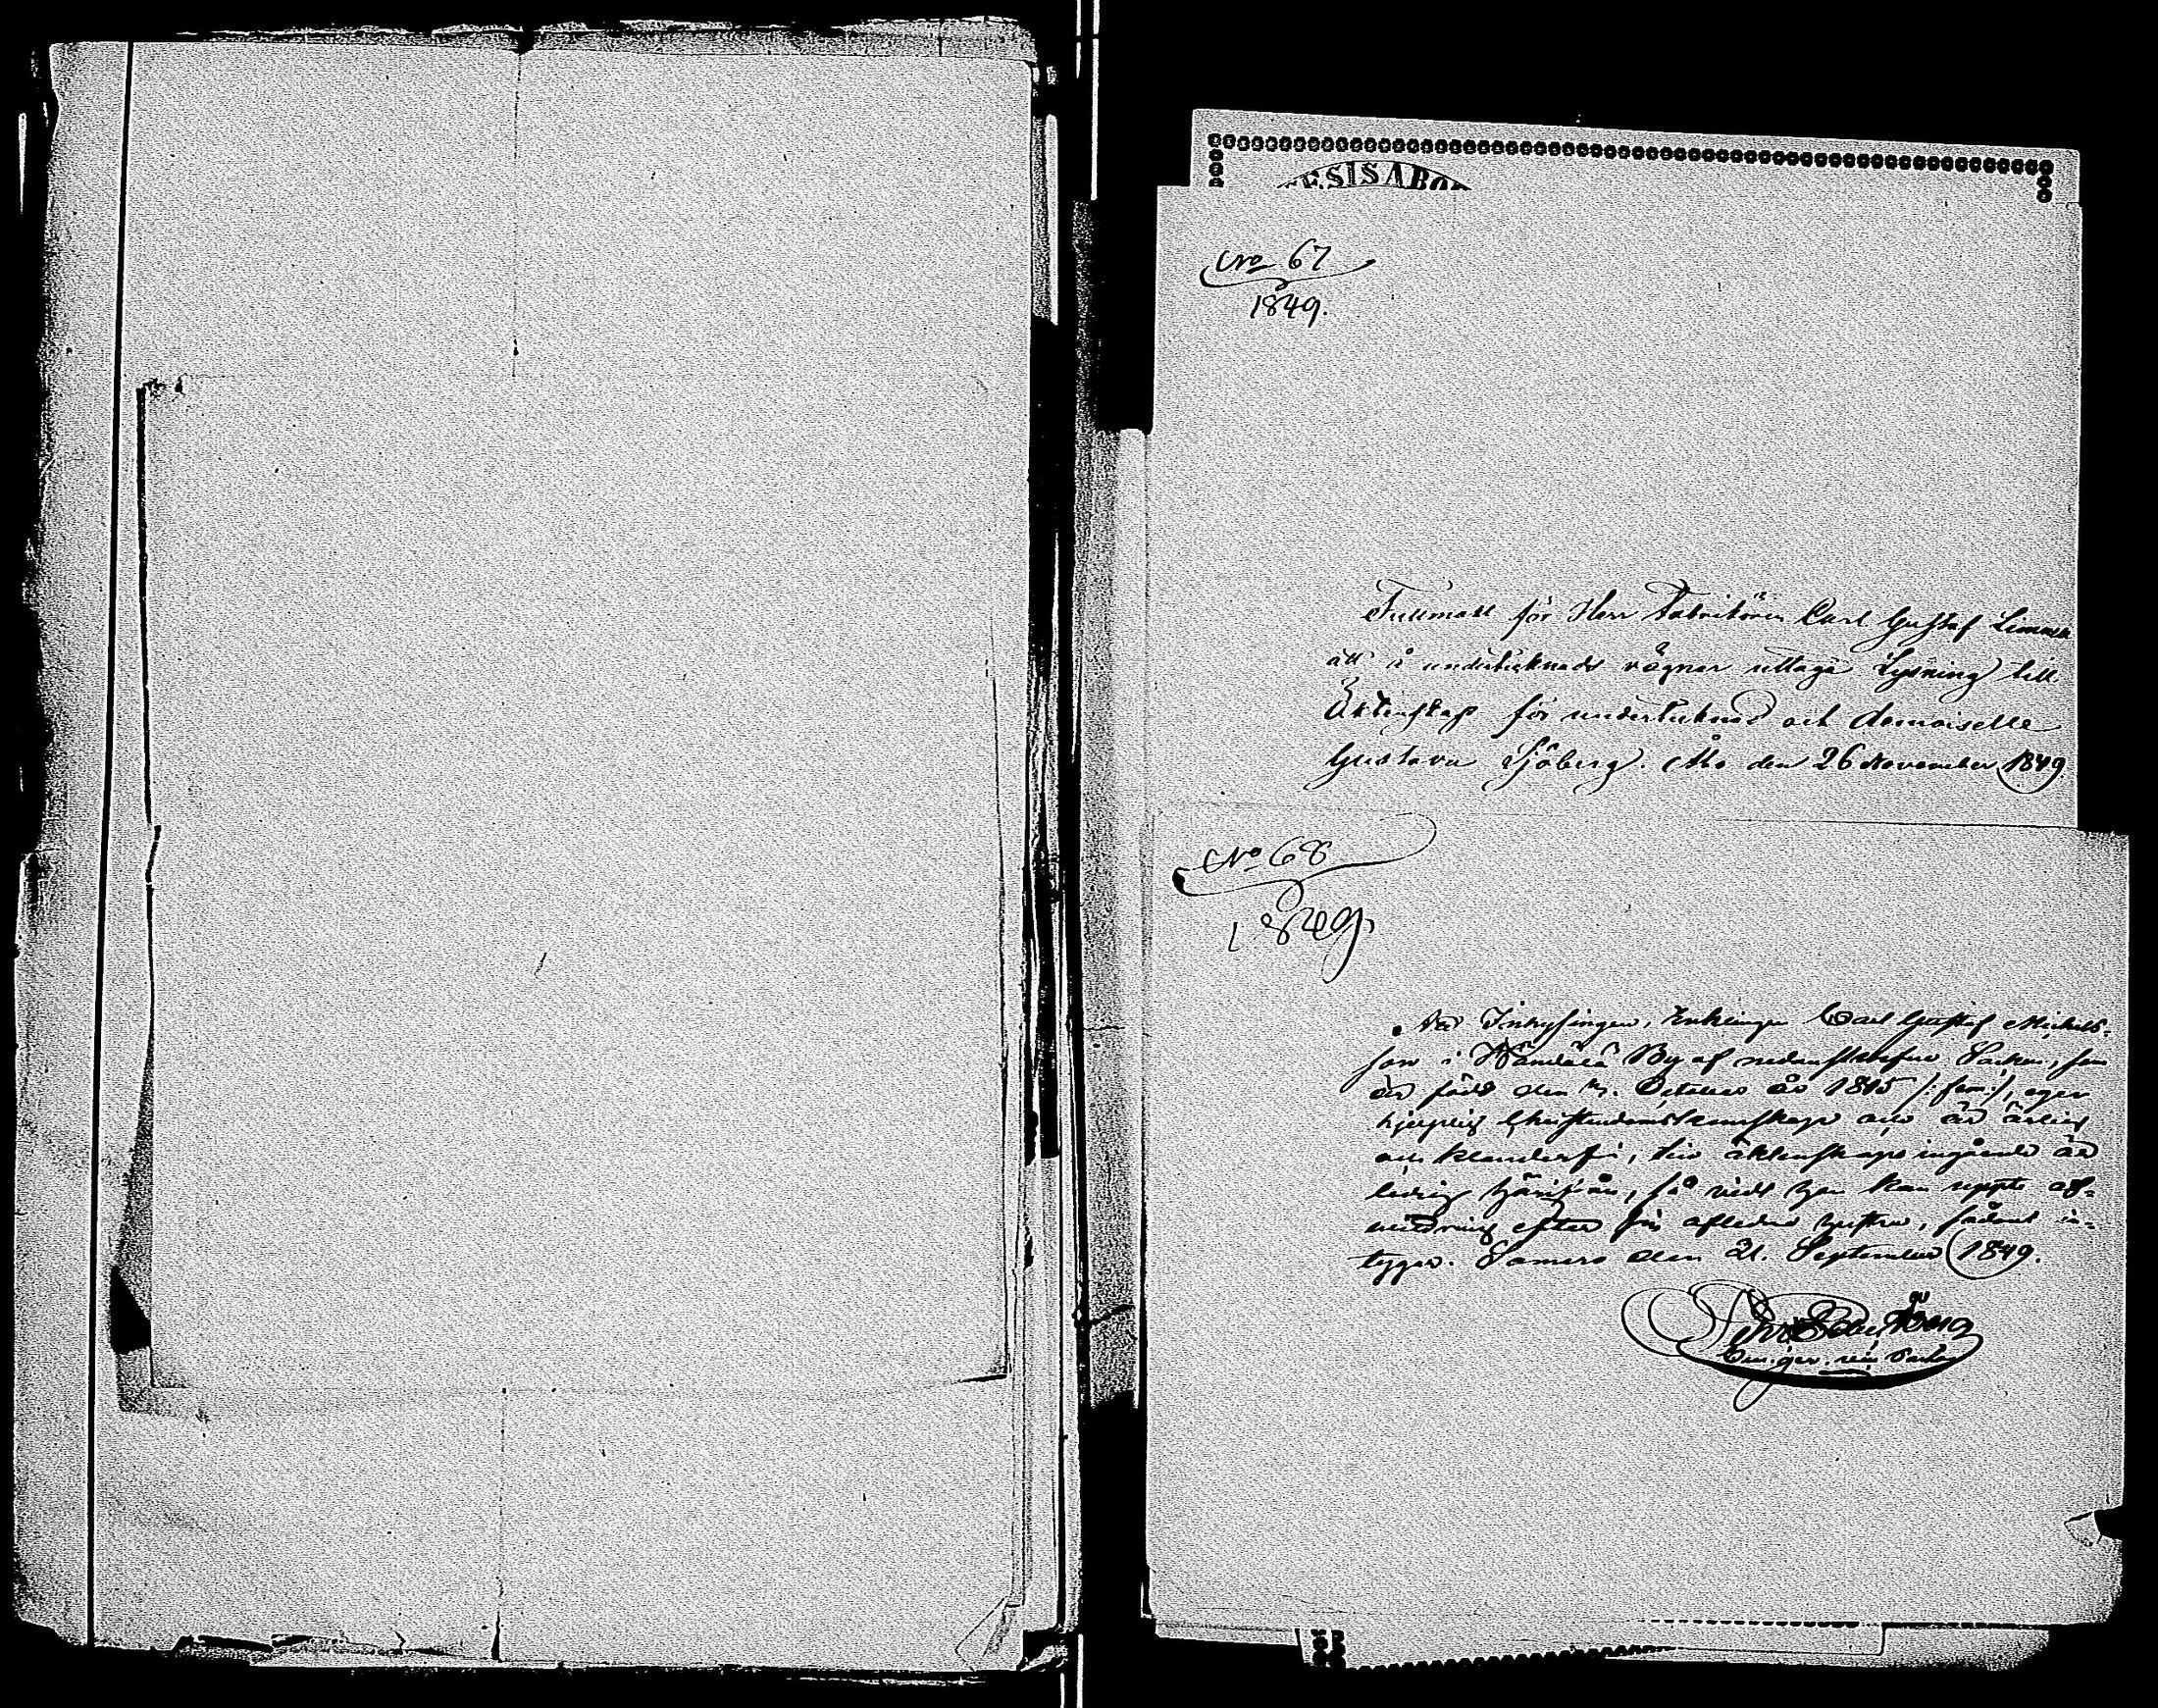 ESIS ABO
No 67
1849.
Fullmakt för Herr Fabrikören Carl Gustaf
att å undertecknads vägnar uttaga Lysning till
Äktenskap för undertecknad och demoiselle
Gustava Sjöberg. Åbo den 26 November 1849.
No 68
1849.
Inhysingen, Enklingen Carl Gustaf Michels-
son i By af Socken, som
är född den October år 1815
hjelplig Christendomskunskap och är ärlig
och klanderfri, till äktenskaps ingående är
ledig härifrån, så vidt han kan uppte af-
vittring efter sin aflidna hustru, sådant in-
tygar. Somero den 21. September 1849.